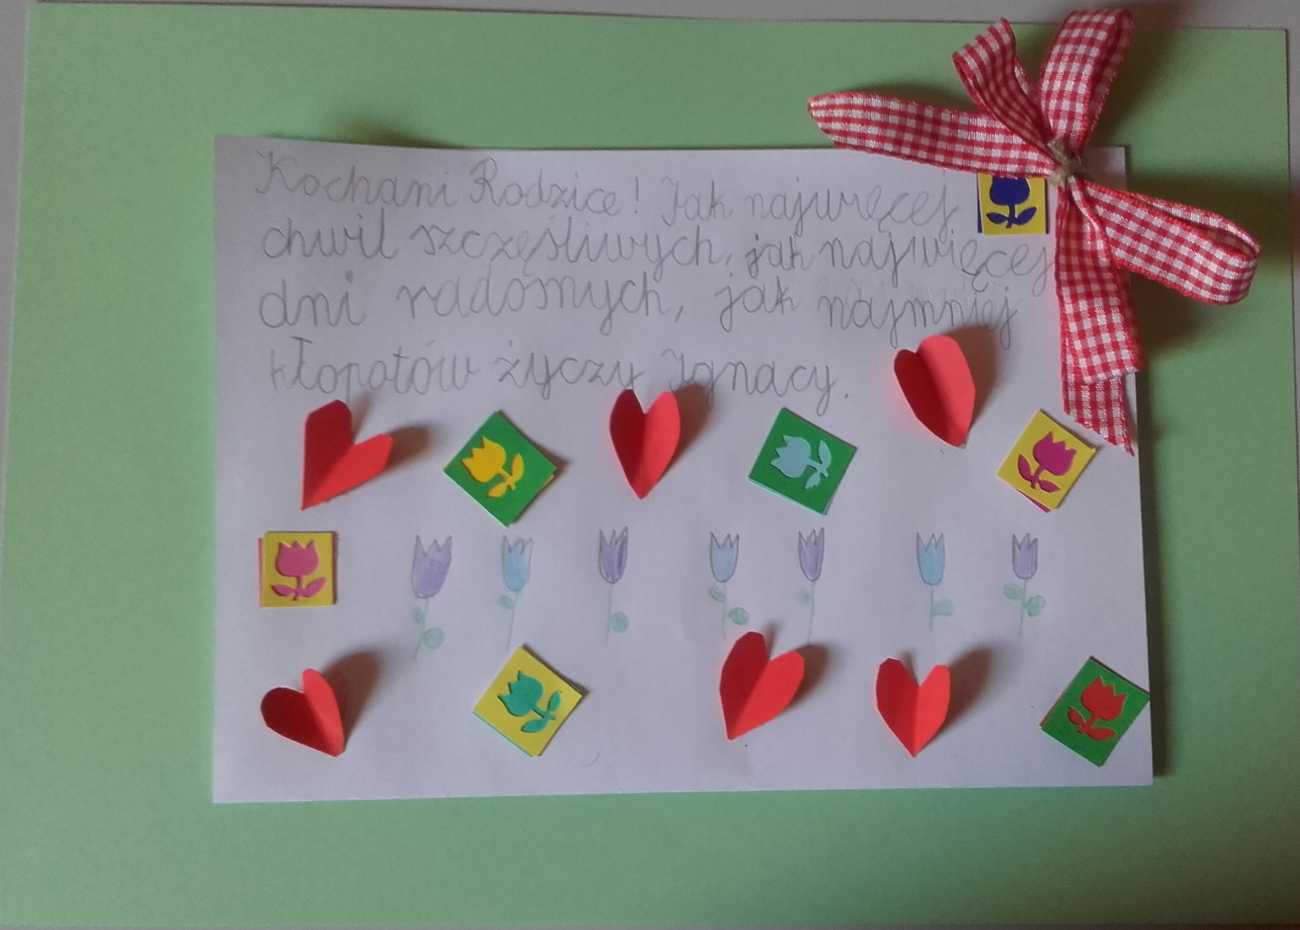 Kochani Rodzice! Jak najwięcej
chwil szczęśliwych, jak najwięcej
dni radosnych, jak najmniej
kłopotów życzy Ignacy.